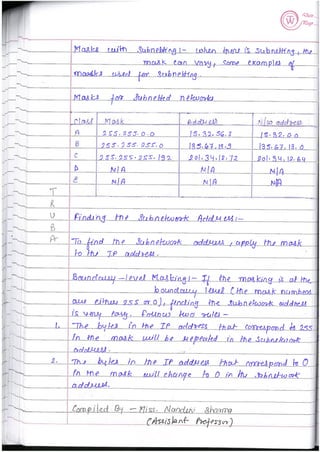 Masks with Subnetting :- when there is subnetting, the
mask can vary, some examples of
masks used for subnetting.
Masks for Subnetted networks
Class Mask Address N/w address
A 255.255.0.0 15.32.56.8 15.32.0.0
B 255.255.255.0 135.67.13.9 135.67.13.0
C 255.255.255.192 201.34.12.72 201.34.12.64
D N/A N/A N/A
E N/A N/A N/A
T
R
U
B
A
Finding the Subnetwork Address :-
To find the Subnetwork address, apply the mask
to the IP address.
Boundary-level Masking :- If the masking is at the
boundary level (the mask numbers
are either 255 or 0), finding the subnetwork address
is very easy. Follow two rules -
1. The bytes in the IP address that correspond to 255
in the mask will be repeated in the subnetwork
address.
2. The bytes in the IP address that correspond to 0
in the mask will change to 0 in the subnetwork
address.
Compiled By - Miss. Nandini Sharma
(Assistant Professor)